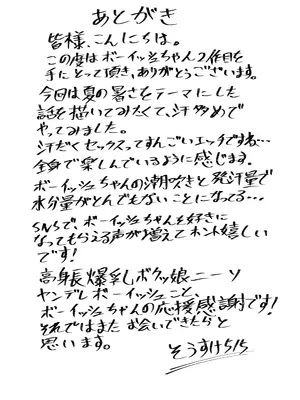 あとがき
皆様、こんにちは。
この度はボーイッシュちゃん2作目を
手にとって頂き、ありがとうございます。
今回は夏の暑さをテーマにした
話を描いてみたくて、汗多めで
やってみました。
汗だくセックスってすんごいエッチですね…
全身で楽しんでいるように感じます。
ボーイッシュちゃんの潮吹きと発汗量で
水分量がとんでもないことになってる…
SNSで、ボーイッシュちゃんを好きに
なってもらえる声が増えてホント嬉しい
です!
高身長爆乳ボクッ娘ニーソ
ヤンデレボーイッシュこと、
ボーイッシュちゃんの応援感謝です!
それではまたお会いできたらと
思います。
そうすけ515